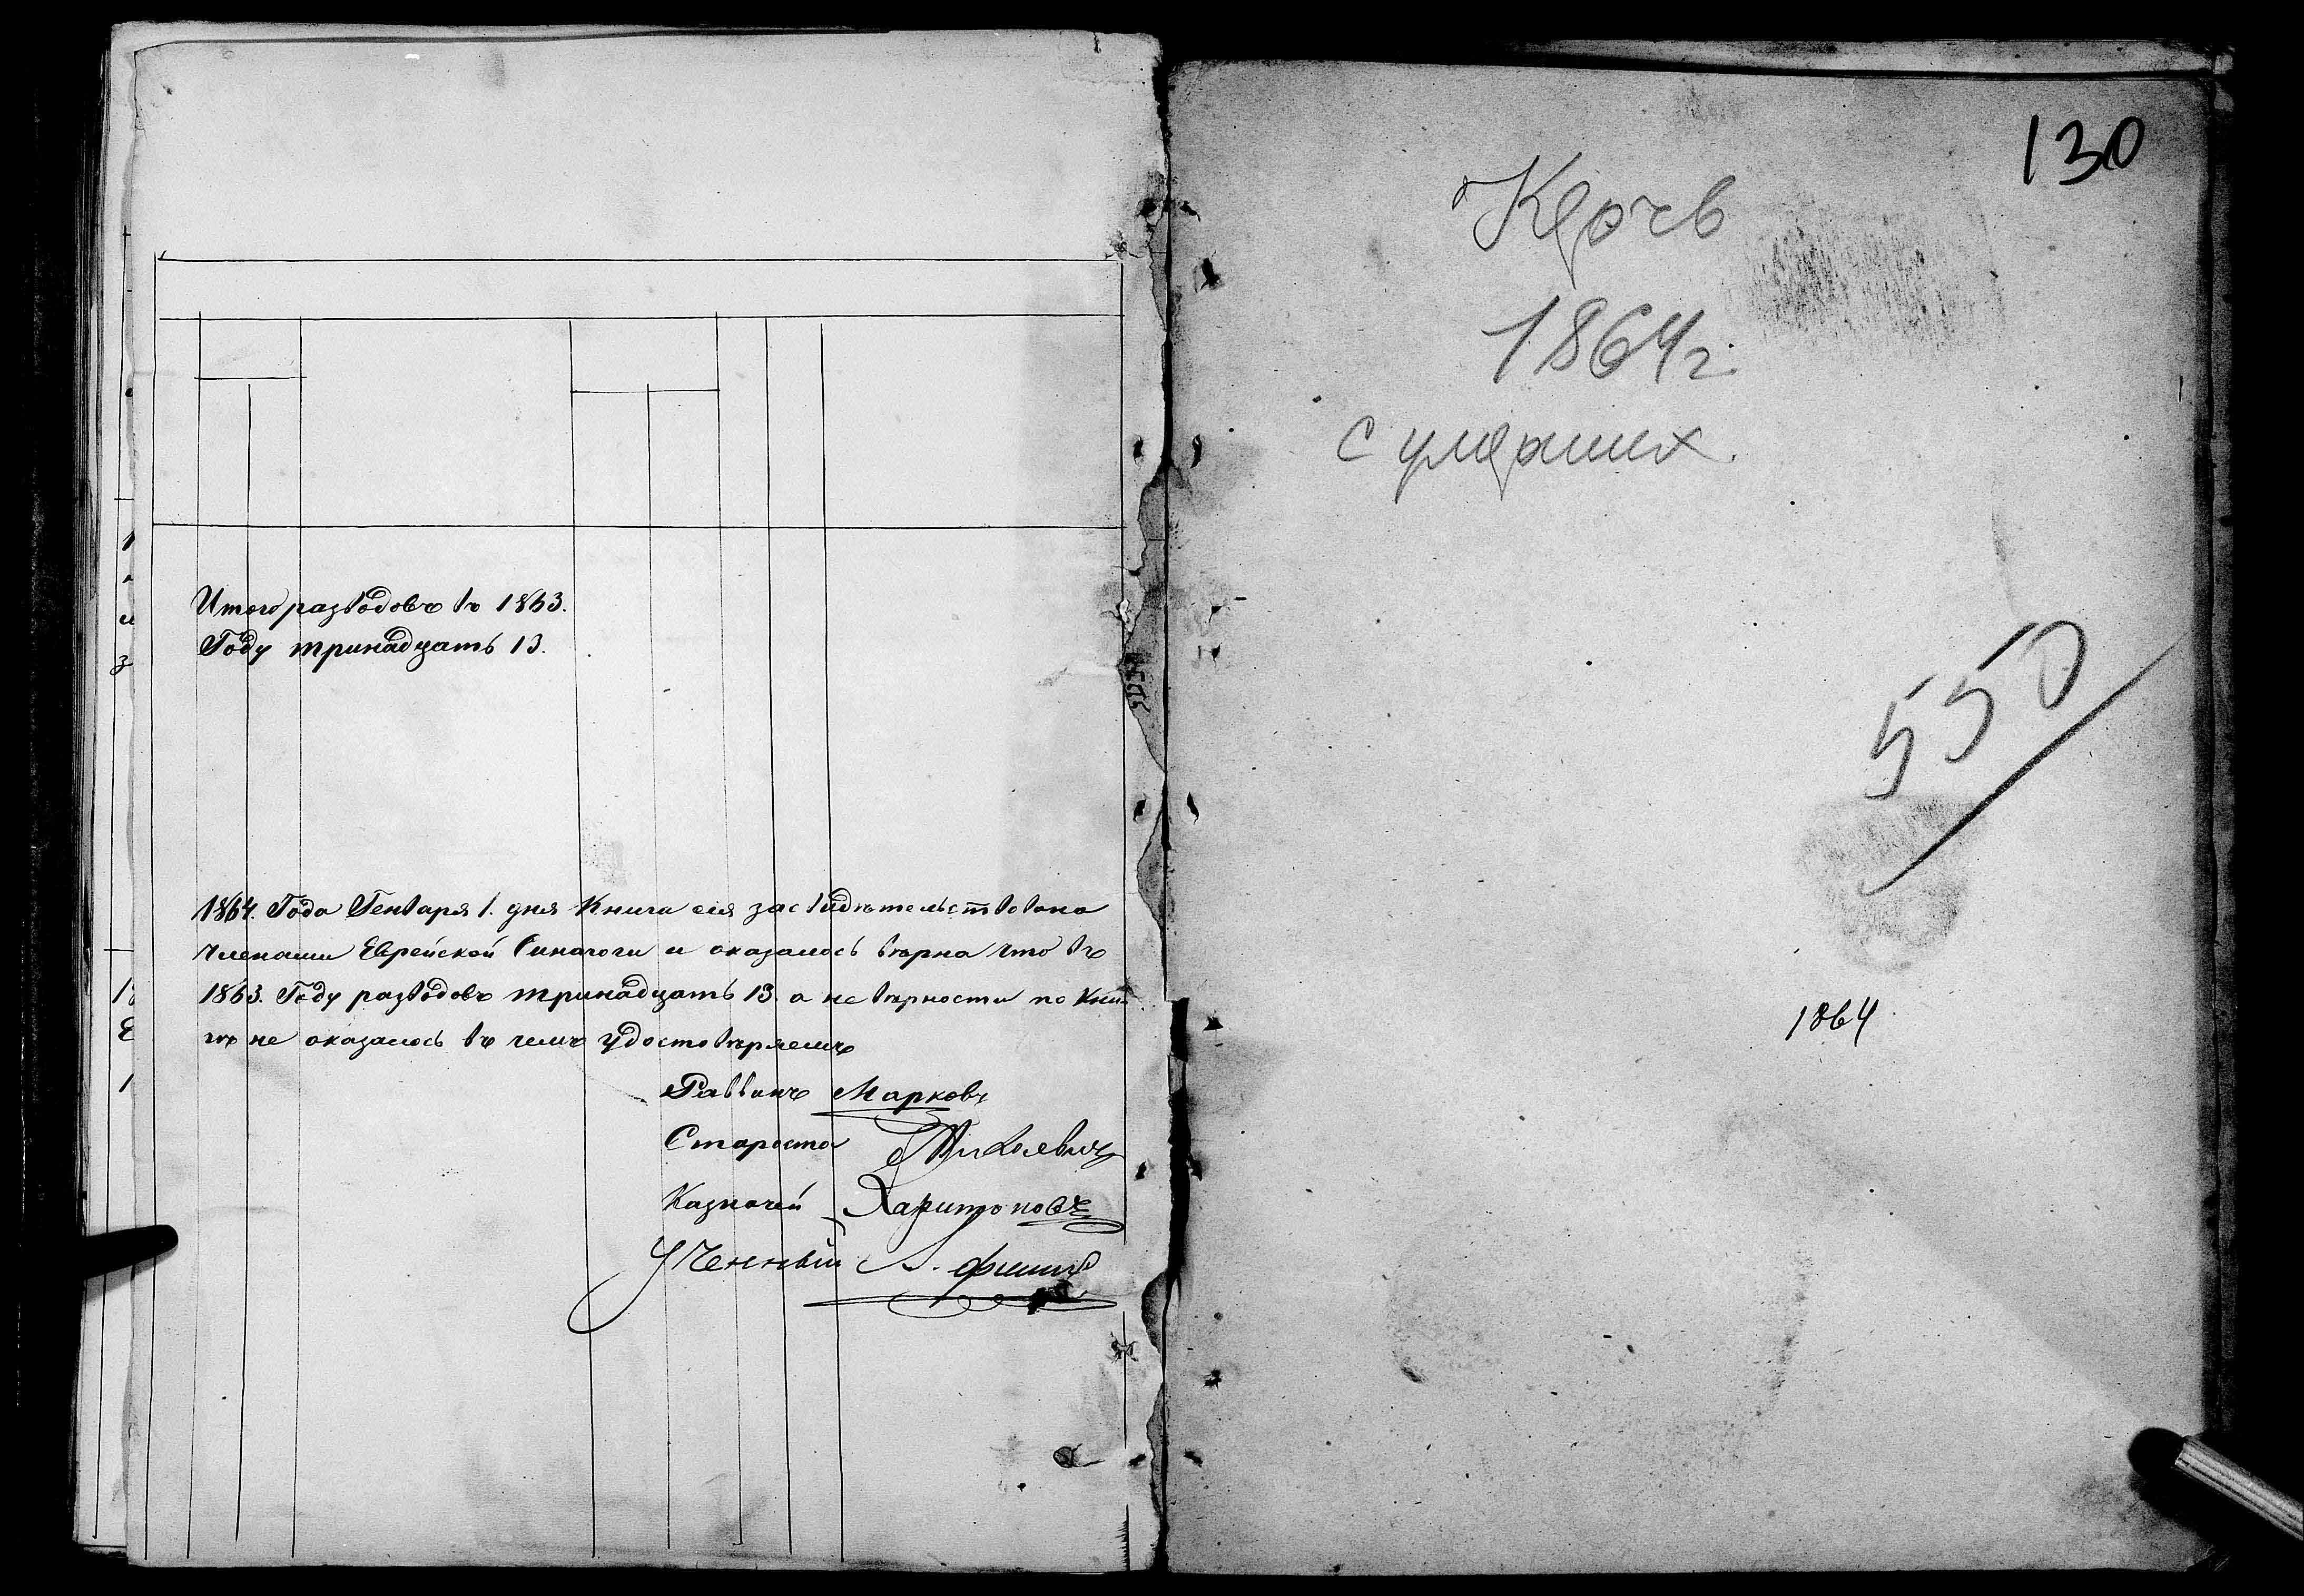 Итого разводовъ въ 1863.
Году тринадцать 13.
1864. Года Генваря 1. дня Книга сия засвидѣтельствована
членами Еврейской Синагоги и оказалось вѣрна что въ
1863. Году разводовъ тринадцать 13. а не вѣрности по Кни-
гѣ не оказалось въ чемъ удостовѣряемъ
Раввинъ Марковъ
Староста
Казначей Харитоновъ
Ученный
130
Керчь
1864 г.
с умерших.
550
1864